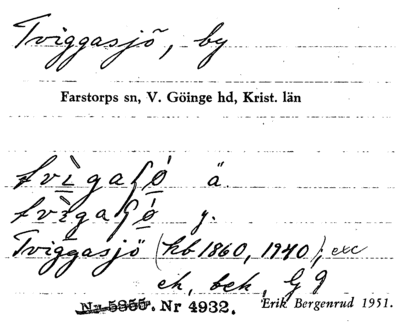 Tviggasjö, by
Farstorps sn, V. Göinge hd, Krist. län
tvìgaʃó ä.
tvìgaʃó y.
Tviggasjö (hb 1860, 1940), exc
ek, bek, GG
Nr 5855. Nr 4932. Erik Bergenrud 1951.